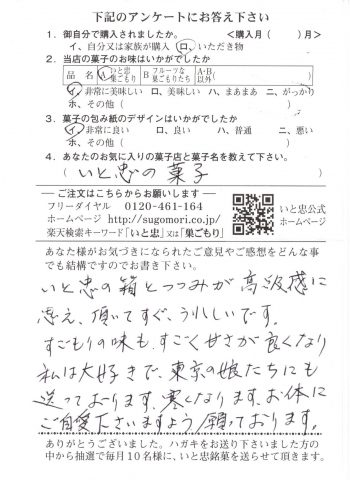 下記のアンケートにお答え下さい
1．御自分で購入されましたか。 <購入月( )月>
イ、自分又は家族が購入 ロ、いただき物
2．当店の菓子のお味はいかがでしたか
品 名 A いと忠巣ごもり B フルーツな巣ごもりたち A・B以外( )
イ、非常に美味しい ロ、美味しい ハ、まあまあ ニ、がっかり
ホ、その他( )
3．菓子の包み紙のデザインはいかがでしたか
イ、非常に良い ロ、良い ハ、普通 ニ、悪い
ホ、その他( )
4．あなたのお気に入りの菓子店と菓子名を教えて下さい。
( いと忠の菓子 )
ご注文はこちらからお願いします
フリーダイヤル 0120-461-164
ホームページ http://sugomori.co.jp/
楽天検索キーワード「いと忠」又は「巣ごもり」
いと忠公式
ホームページ
あなた様がお気づきになられたご意見やご感想をどんな事
でも結構ですのでお書き下さい。
いと忠の箱とつつみが高級感に
思え、頂いてすぐ、うれしいです。
すごもりの味も、すごく甘さが良くなり
私は大好きで、東京の娘たちにも
送っております。寒くなります、お体に
ご自愛下さいますよう願っております。
ありがとうございました。ハガキをお送り下さいました方の
中から抽選で毎月10名様に、いと忠銘菓を送らせて頂きます。